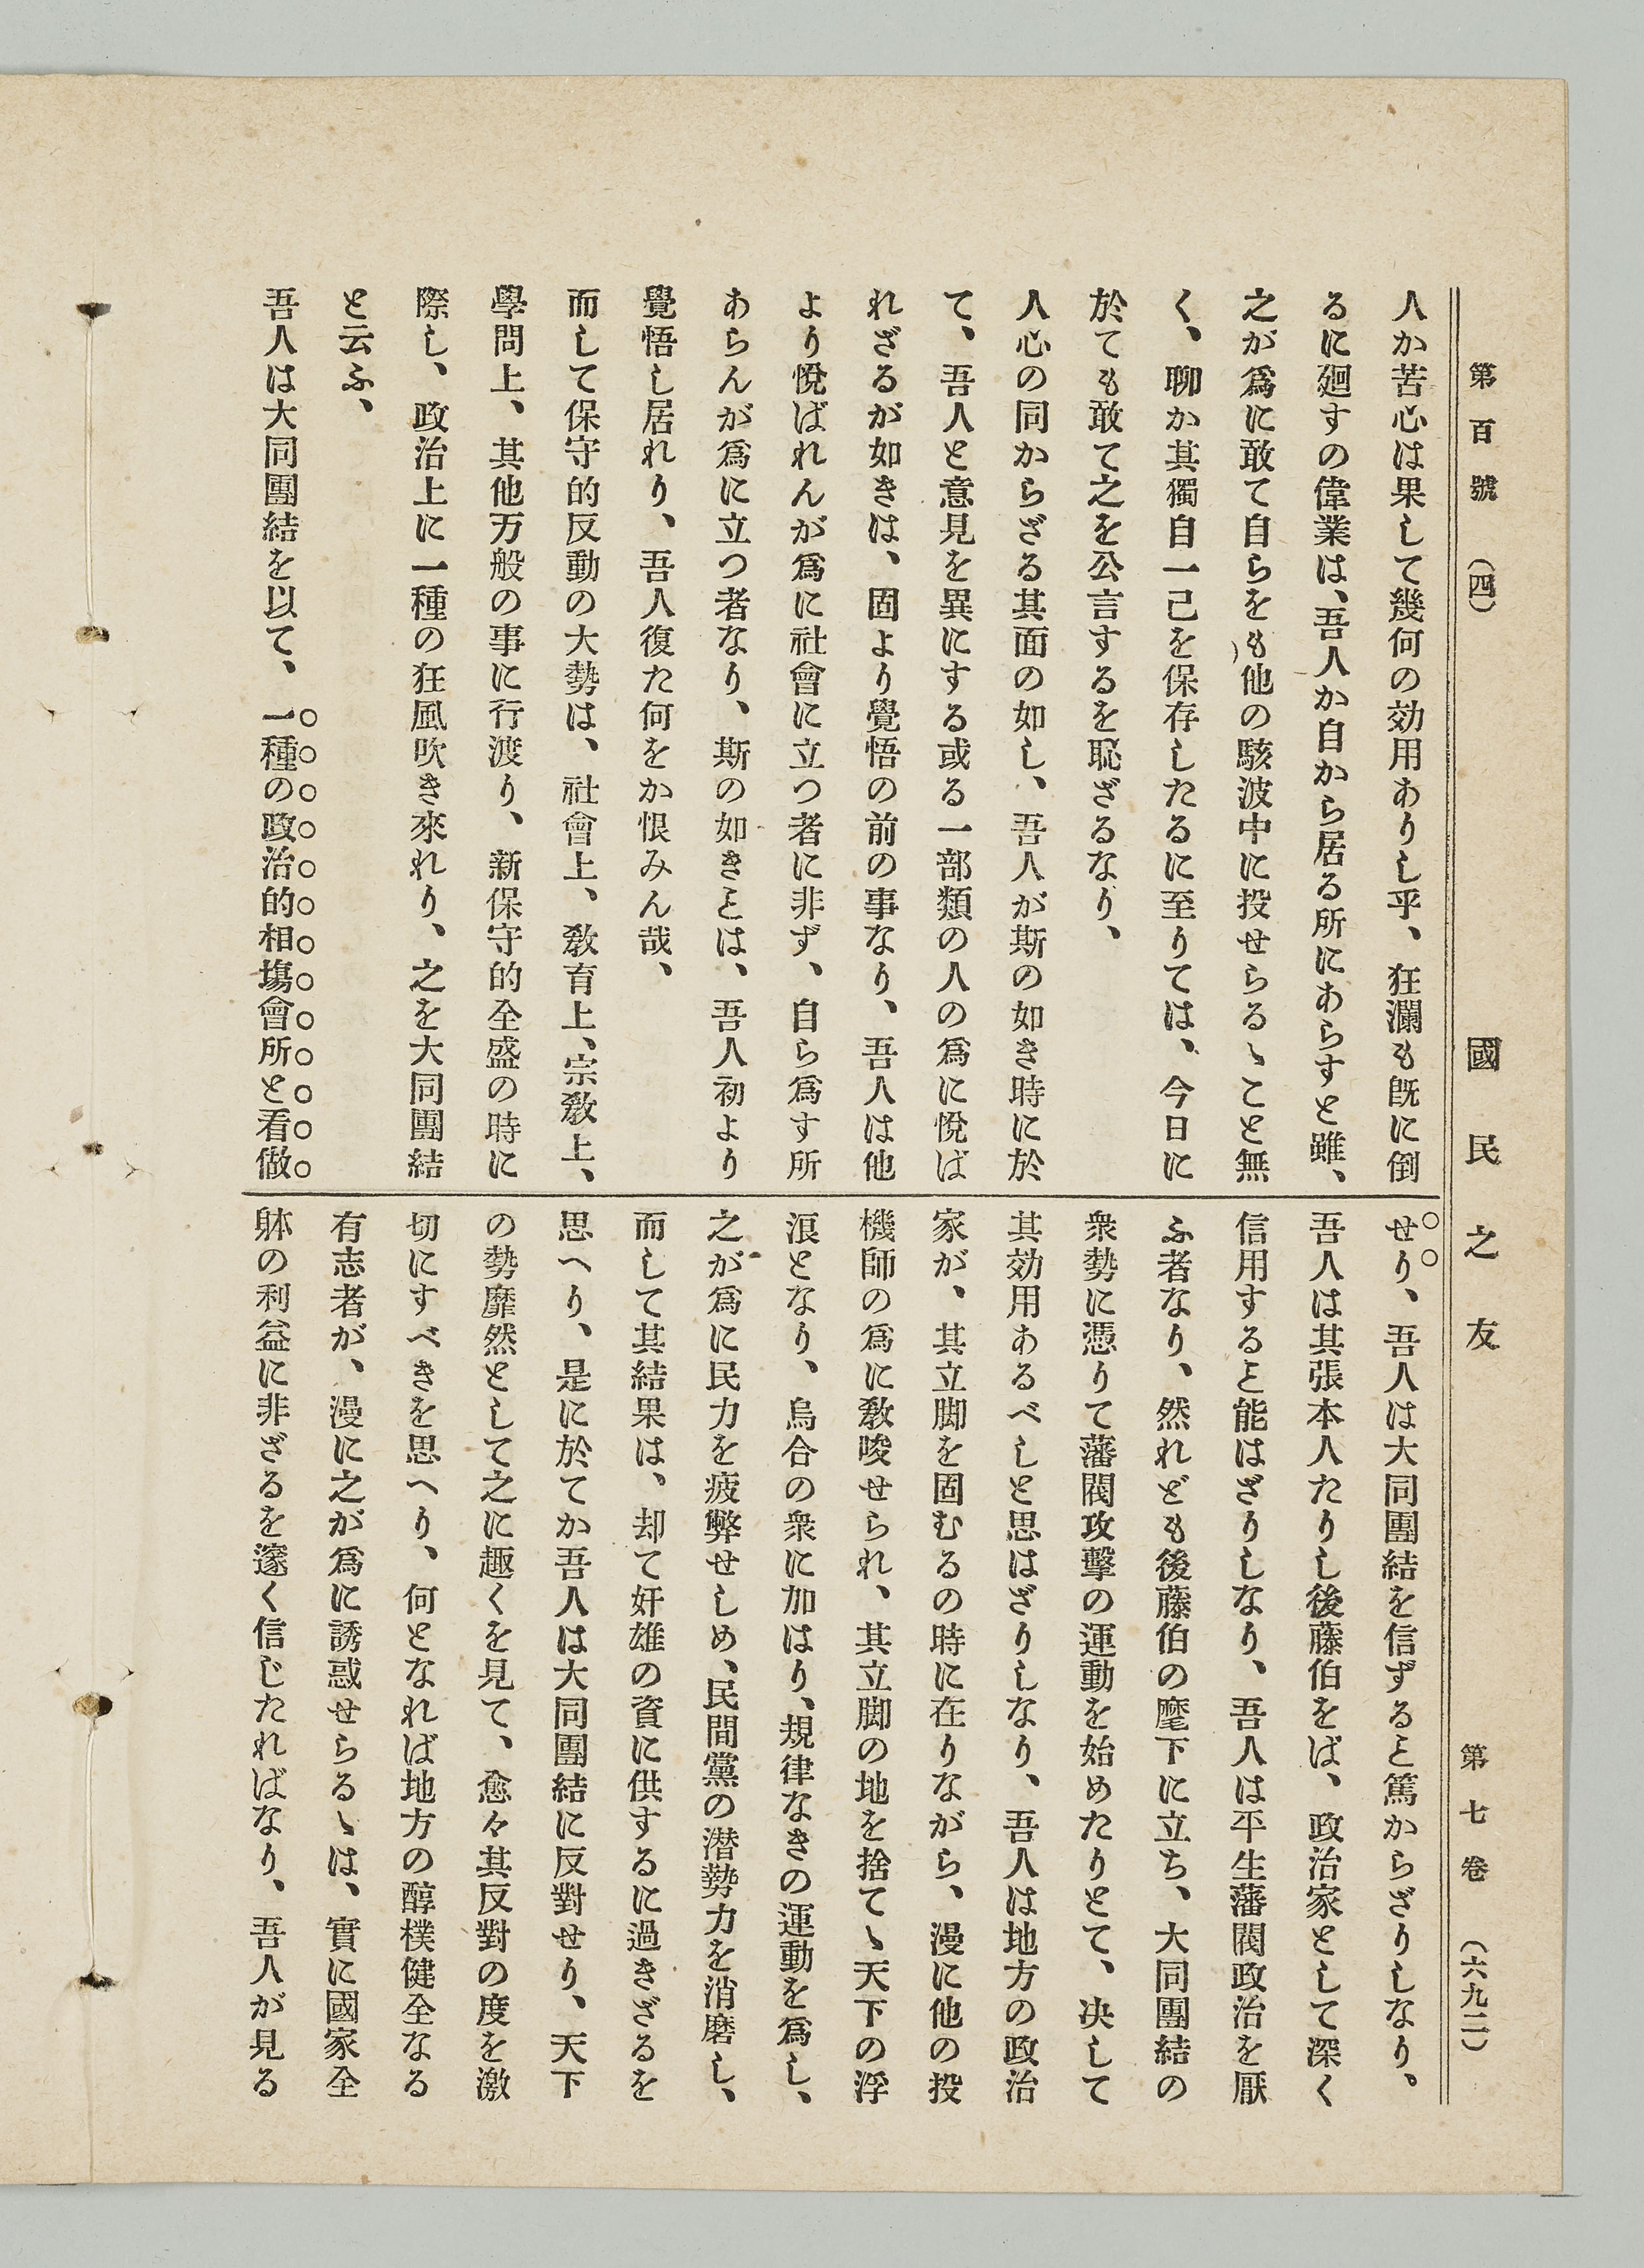 第百號　（四）　國民之友　第七卷　（六九二）
人か苦心は果して幾何の効用ありし乎、狂瀾も旣に倒
るに廻すの偉業は、吾人か自から居る所にあらすと雖、
之が爲に敢て自らをも他の駭波中に投せらるゝこと無
く、聊か其獨自一己を保存したるに至りては、今日に
於ても敢て之を公言するを恥ざるなり、
人心の同からざる其面の如し、吾人が斯の如き時に於
て、吾人と意見を異にする或る一部類の人の爲に悅ば
れざるが如きは、固より覺悟の前の事なり、吾人は他
より悅ばれんが爲に社會に立つ者に非ず、自ら爲す所
あらんが爲に立つ者なり、斯の如きヿは、吾人初より
覺悟し居れり、吾人復た何をか恨みん哉、
而して保守的反動の大勢は、社會上、敎育上、宗敎上、
學問上、其他万般の事に行渡り、新保守的全盛の時に
際し、政治上に一種の狂風吹き來れり、之を大同團結
と云ふ、
吾人は大同團結を以て、一種の政治的相塲會所と看做
せり、吾人は大同團結を信ずるヿ篤からざりしなり、
吾人は其張本人たりし後藤伯をば、政治家として深く
信用するヿ能はざりしなり、吾人は平生藩閥政治を厭
ふ者なり、然れども後藤伯の麾下に立ち、大同團結の
衆勢に憑りて藩閥攻擊の運動を始めたりとて、决して
其効用あるべしと思はざりしなり、吾人は地方の政治
家が、其立脚を固むるの時に在りながら、漫に他の投
機師の爲に敎唆せられ、其立脚の地を捨てゝ天下の浮
浪となり、烏合の衆に加はり、規律なきの運動を爲し、
之が爲に民力を疲弊せしめ、民間黨の潜勢力を消磨し、
而して其結果は、却て奸雄の資に供するに過きざるを
思へり、是に於てか吾人は大同團結に反對せり、天下
の勢靡然として之に趣くを見て、愈々其反對の度を激
切にすべきを思へり、何となれば地方の醇樸健全なる
有志者が、漫に之が爲に誘惑せらるゝは、實に國家全
躰の利益に非ざるを邃く信じたればなり、吾人が見る